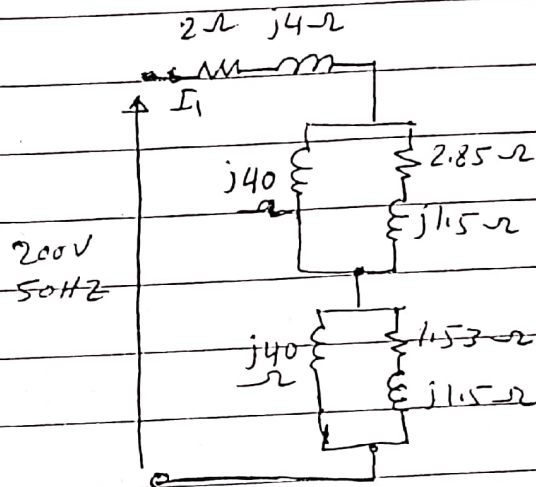 2Ω j4Ω
I₁
j40
Ω
2.85Ω
j1.5Ω
200V
50HZ
j40
Ω
1.53Ω
j1.5Ω